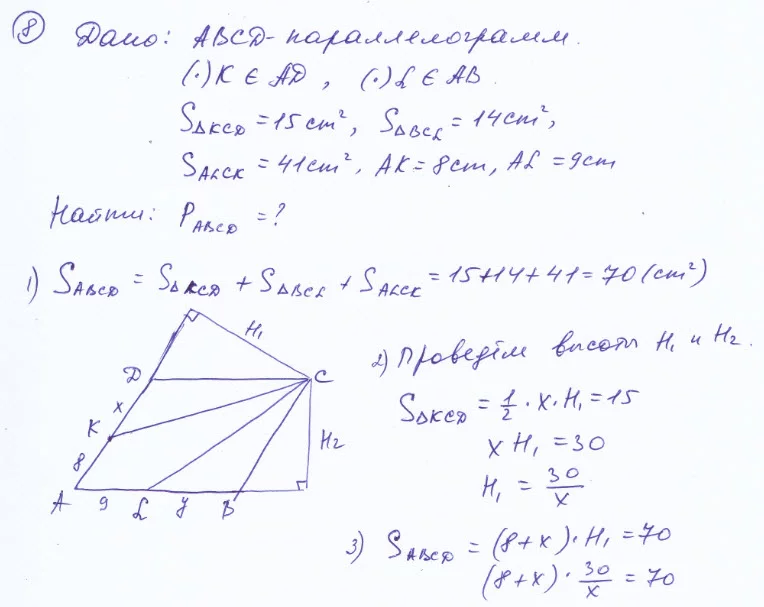 8 Дано: ABCD - параллелограмм.
(·) K ∈ AD, (·) L ∈ AB.
S△KCD = 15 cm², S△BCL = 14 cm²,
SALCK = 41 cm², AK = 8 cm, AL = 9 cm
Найти: PABCD = ?
1) SABCD = S△KCD + S△BCL + SALCK = 15+14+41 = 70 (cm²)
H₁
D
C
x
K
H₂
8
A 9 L y B
2) Проведём высоты H₁ и H₂.
S△KCD = 1/2 · x · H₁ = 15
x H₁ = 30
H₁ = 30/x
3) SABCD = (8+x) · H₁ = 70
(8+x) · 30/x = 70